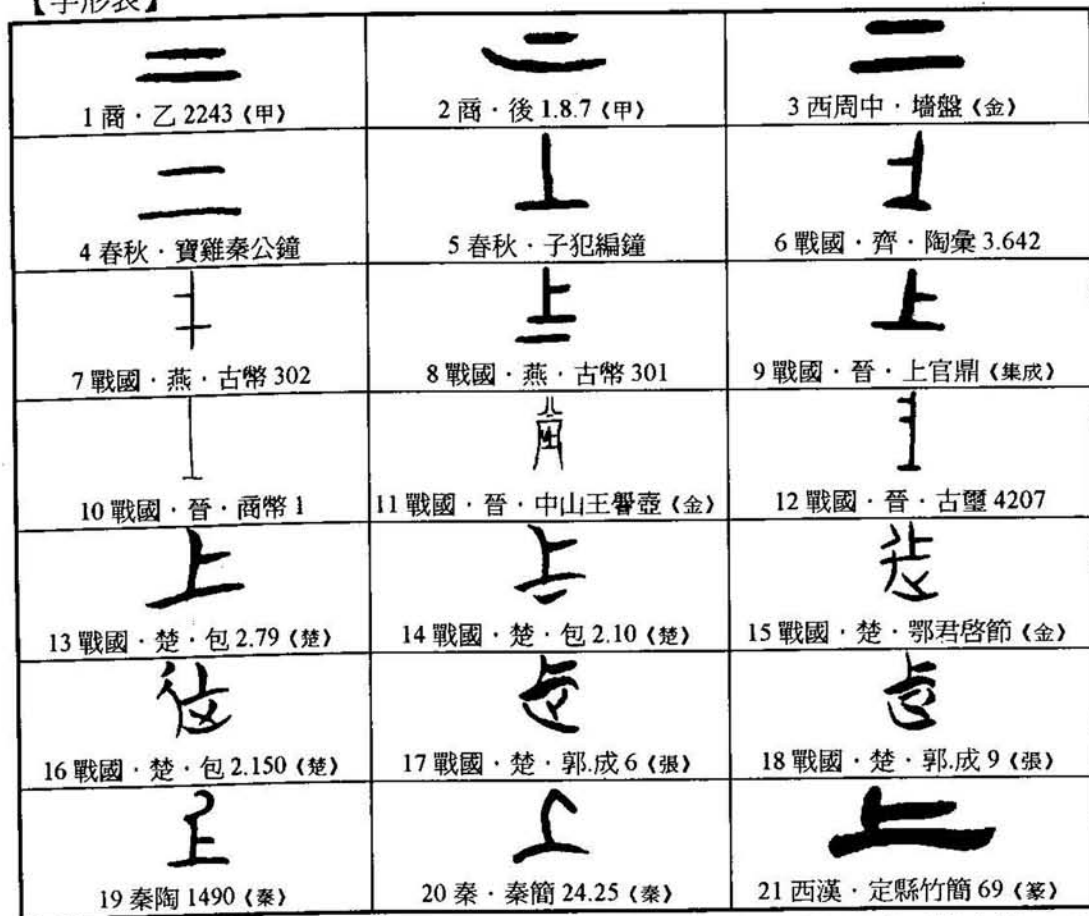 【字形表】
1 商·乙 2243《甲》
2 商·後 1.8.7《甲》
3 西周中·墻盤《金》
4 春秋·寶雞秦公鐘
5 春秋·子犯編鐘
6 戰國·齊·陶彙 3.642
7 戰國·燕·古幣 302
8 戰國·燕·古幣 301
9 戰國·晉·上官鼎《集成》
10 戰國·晉·商幣 1
11 戰國·晉·中山王譽壺《金》
12 戰國·晉·古璽 4207
13 戰國·楚·包 2.79《楚》
14 戰國·楚·包 2.10《楚》
15 戰國·楚·鄂君啓節《金》
16 戰國·楚·包 2.150《楚》
17 戰國·楚·郭.成 6《張》
18 戰國·楚·郭.成 9《張》
19 秦陶 1490《秦》
20 秦·秦簡 24.25《秦》
21 西漢·定縣竹簡 69《篆》